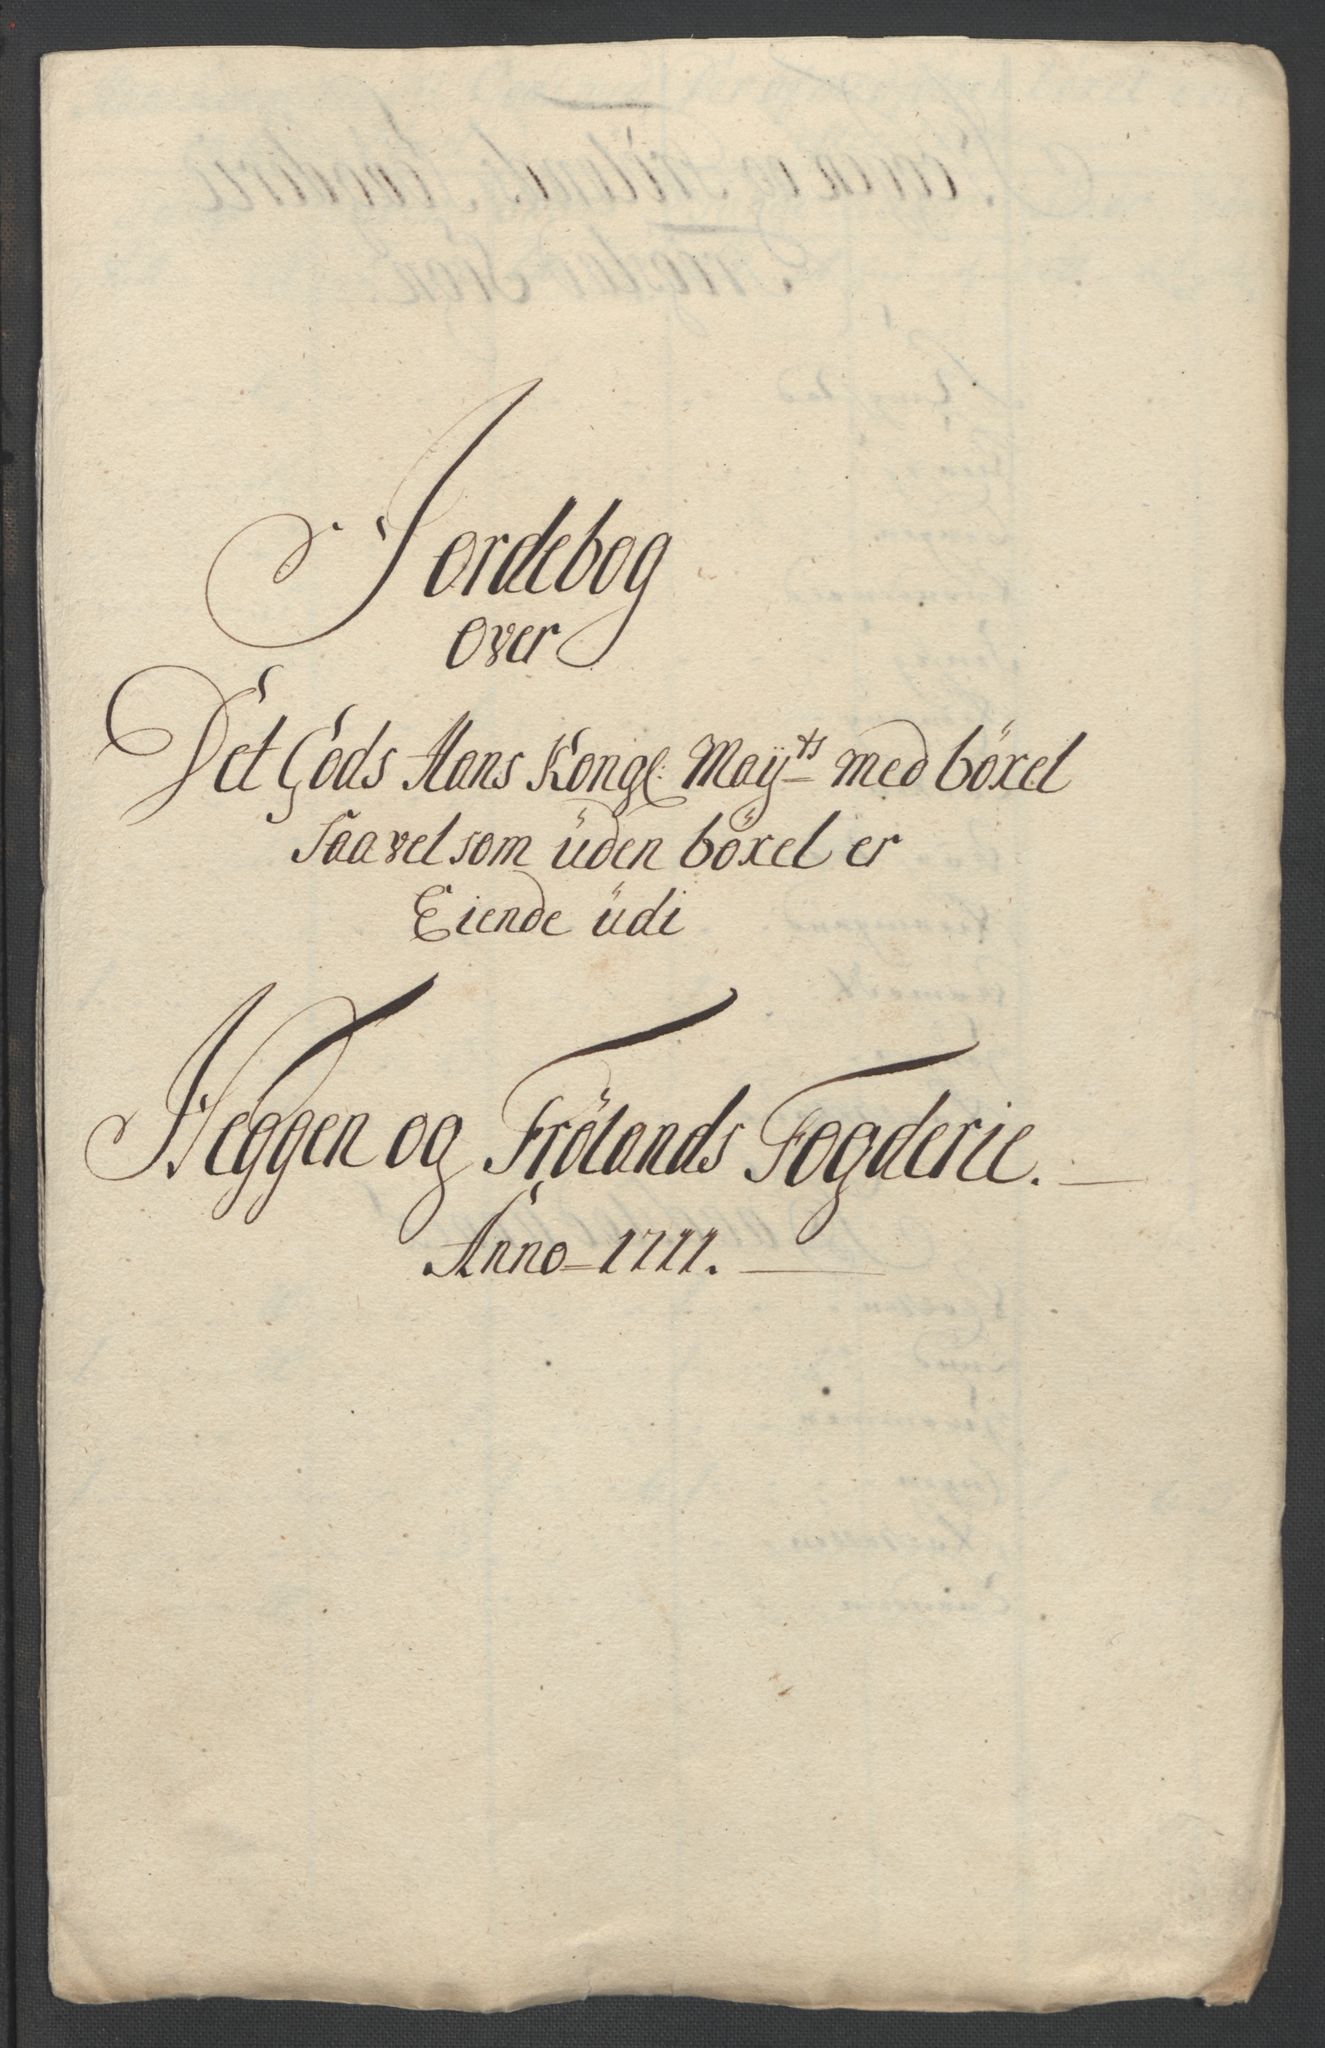 Jordebog
over
Det Gods Hans Kongl: Maÿts med böxel
saavel som üden böxel er
Eiende üdi
Heggen og Frölands Fogderie.
Anno 1711.